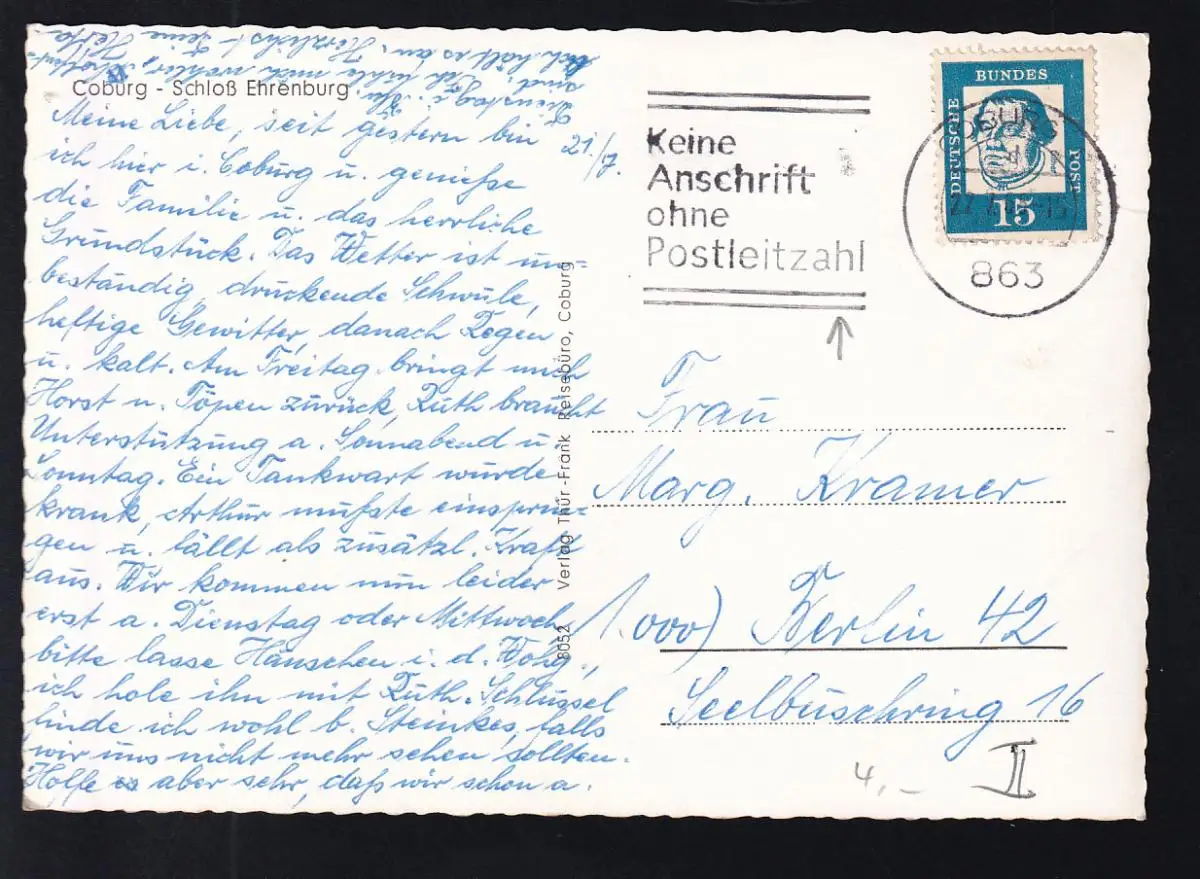 Coburg - Schloß Ehrenburg
21./7.
Meine Liebe, seit gestern bin
ich hier i. Coburg u. genieße
die Familie u. das herrliche
Grundstück. Das Wetter ist un=
beständig, drückende Schwüle,
heftige Gewitter, danach Regen
u. kalt. Am Freitag bringt mich
Horst n. Töpen zurück, Ruth braucht
Unterstützung a. Sonnabend u.
Sonntag. Ein Tankwart wurde
krank, Arthur mußte einsprin-
gen u. fällt als zusätzl. Kraft
aus. Wir kommen nun leider
erst a. Dienstag oder Mittwoch,
bitte lasse Hänschen i. d. Wohg.,
ich hole ihn mit Ruth. Schlüssel
finde ich wohl b. Steinkes, falls
wir uns nicht mehr sehen sollten.
Hoffe es aber sehr, daß wir schon a.
Dienstag i.
sind. Ich fühle mich wohler,
hält es an. Herzlichst Deine Herta
Verlag Thür.-Frank. Reisebüro, Coburg
8052
Keine
Anschrift
ohne
Postleitzahl
DEUTSCHE
BUNDES
POST
15
863
Frau
Marg. Kramer
1000) Berlin 42
Seelbuschring 16
4,-
II